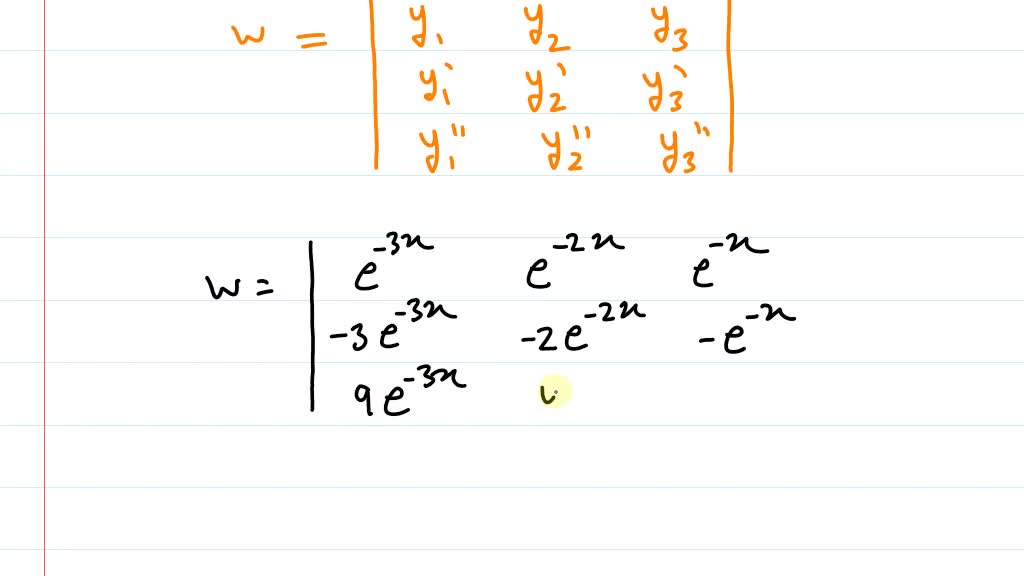 w = | y₁ y₂ y₃ |
| y₁' y₂' y₃' |
| y₁" y₂" y₃" |
w = | e^{-3x} e^{-2x} e^{-x}
| -3e^{-3x} -2e^{-2x} -e^{-x}
| 9e^{-3x}